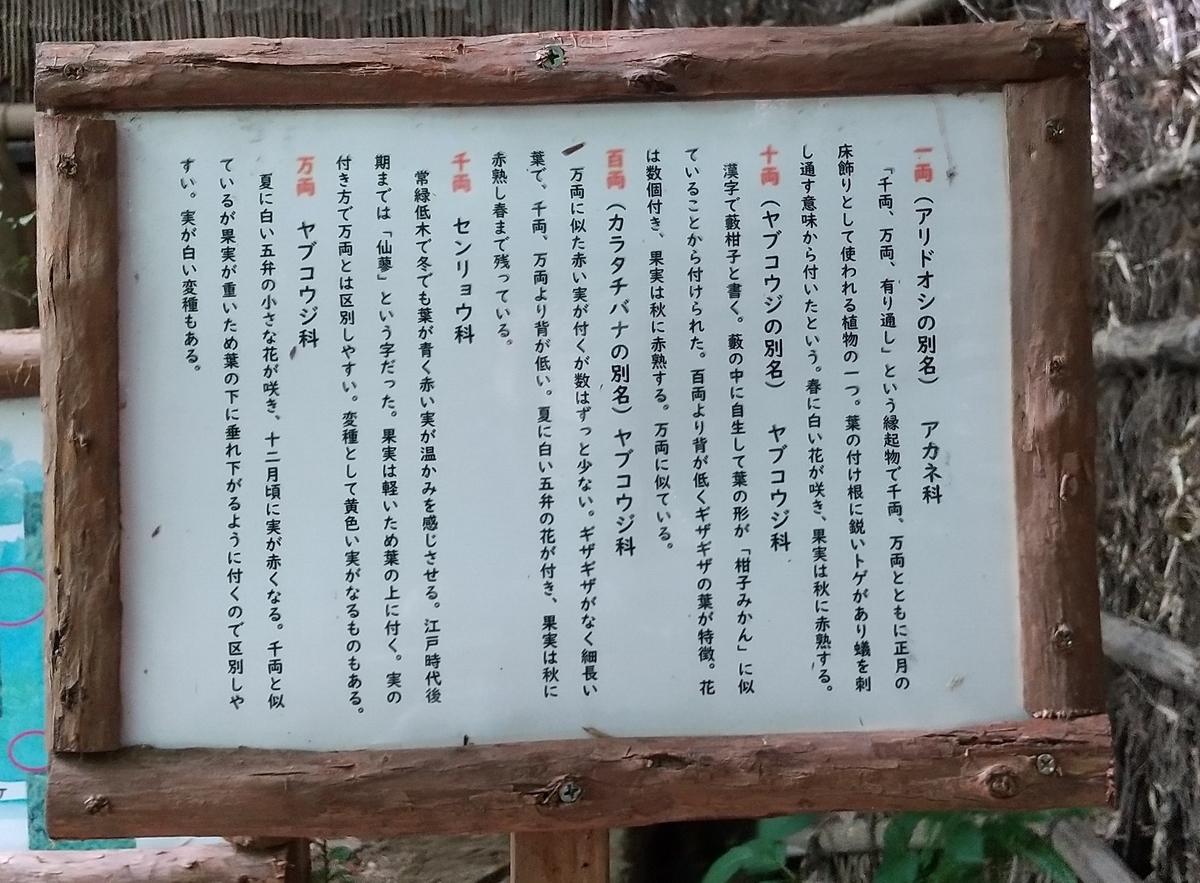 一両（アリドオシの別名）　アカネ科
「千両、万両、有り通し」という縁起物で千両、万両とともに正月の
床飾りとして使われる植物の一つ。葉の付け根に鋭いトゲがあり蟻を刺
し通す意味から付いたという。春に白い花が咲き、果実は秋に赤熟する。
十両（ヤブコウジの別名）　ヤブコウジ科
漢字で藪柑子と書く。藪の中に自生して葉の形が「柑子みかん」に似
ていることから付けられた。百両より背が低くギザギザの葉が特徴。花
は数個付き、果実は秋に赤熟する。万両に似ている。
百両（カラタチバナの別名）ヤブコウジ科
万両に似た赤い実が付くが数はずっと少ない。ギザギザがなく細長い
葉で、千両、万両より背が低い。夏に白い五弁の花が付き、果実は秋に
赤熟し春まで残っている。
千両　センリョウ科
常緑低木で冬でも葉が青く赤い実が温かみを感じさせる。江戸時代後
期までは「仙蓼」という字だった。果実は軽いため葉の上に付く。実の
付き方で万両とは区別しやすい。変種として黄色い実がなるものもある。
万両　ヤブコウジ科
夏に白い五弁の小さな花が咲き、十二月頃に実が赤くなる。千両と似
ているが果実が重いため葉の下に垂れ下がるように付くので区別しや
すい。実が白い変種もある。